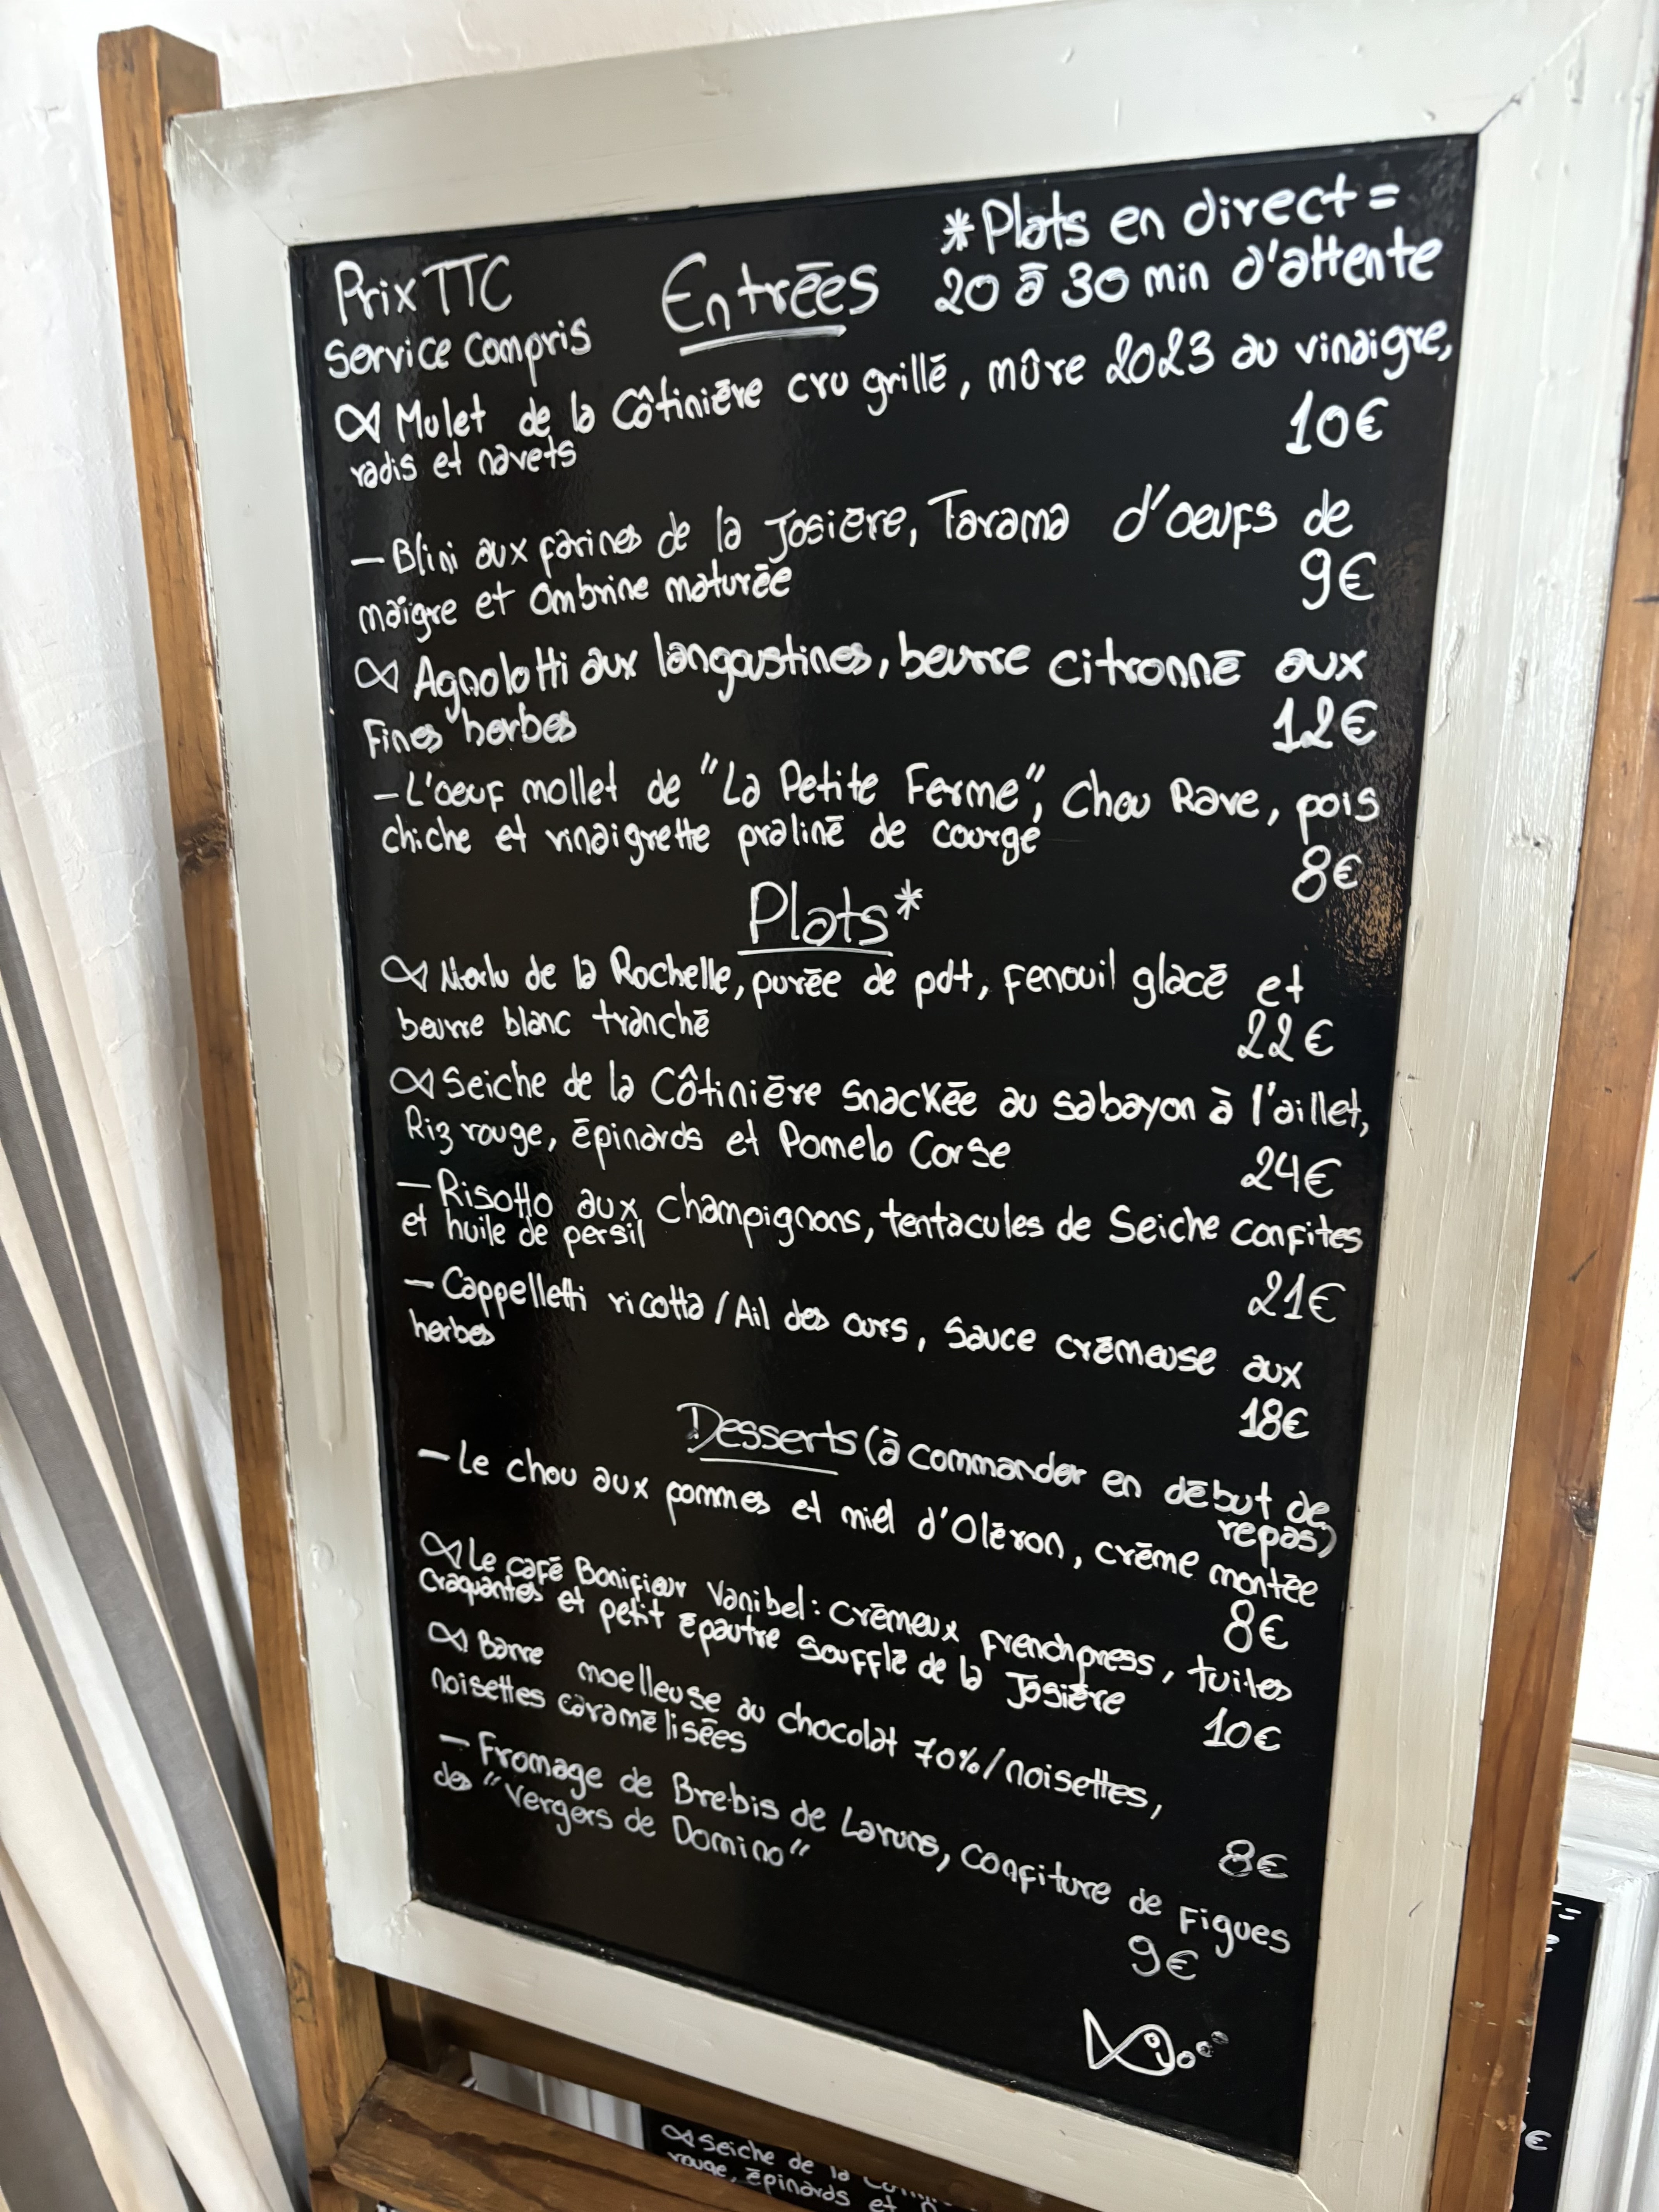 *Plats en direct =
20 à 30 min d'attente
Prix TTC
Service Compris
Entrées
Mulet de la Côtinière cru grillé, mûre 2023 au vinaigre,
radis et navets
10€
- Blini aux farines de la Josière, Tarama d'oeufs de
maigre et Ombrine maturée
9€
Agnolotti aux langoustines, beurre citronné aux
Fines herbes
12€
- L'oeuf mollet de "La Petite Ferme", Chou Rave, pois
chiche et vinaigrette praliné de courge
8€
Plats*
Merlu de la Rochelle, purée de pdt, Fenouil glacé et
beurre blanc tranché
22€
Seiche de la Côtinière Snackée au sabayon à l'aillet,
Riz rouge, épinards et Pomelo Corse
24€
- Risotto aux champignons, tentacules de Seiche confites
et huile de persil
21€
- Cappelletti ricotta/Ail des ours, Sauce crémeuse aux
herbes
18€
Desserts (à commander en début de
repas)
- Le chou aux pommes et miel d'Oléron, crème montée
8€
Le café Bonifieur Vanibel: Crémeux Frenchpress, tuiles
Craquantes et petit Epautre Soufflé de la Josière
10€
Barre moelleuse au chocolat 70%/noisettes,
Noisettes caramélisées
8€
- Fromage de Brebis de Laruns, Confiture de Figues
des "Vergers de Domino"
9€
Seiche de la
rouge, épinards et
€